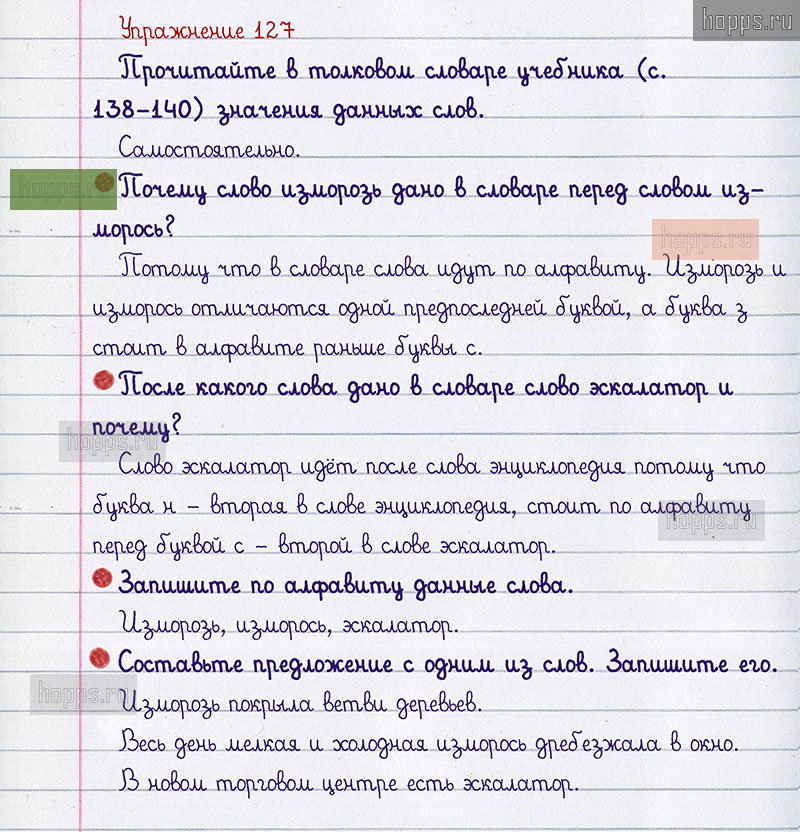 hopps.ru
Упражнение 127
Прочитайте в толковом словаре учебника (с.
138–140) значения данных слов.
Самостоятельно.
hopps.ru
Почему слово изморозь дано в словаре перед словом из–
морось?
hopps.ru
Потому что в словаре слова идут по алфавиту. Изморозь и
изморось отличаются одной предпоследней буквой, а буква з
стоит в алфавите раньше буквы с.
После какого слова дано в словаре слово эскалатор и
почему?
hopps.ru
Слово эскалатор идёт после слова энциклопедия потому что
буква н – вторая в слове энциклопедия, стоит по алфавиту
hopps.ru
перед буквой с – второй в слове эскалатор.
Запишите по алфавиту данные слова.
Изморозь, изморось, эскалатор.
Составьте предложение с одним из слов. Запишите его.
hopps.ru
Изморозь покрыла ветви деревьев.
Весь день мелкая и холодная изморось дребезжала в окно.
В новом торговом центре есть эскалатор.